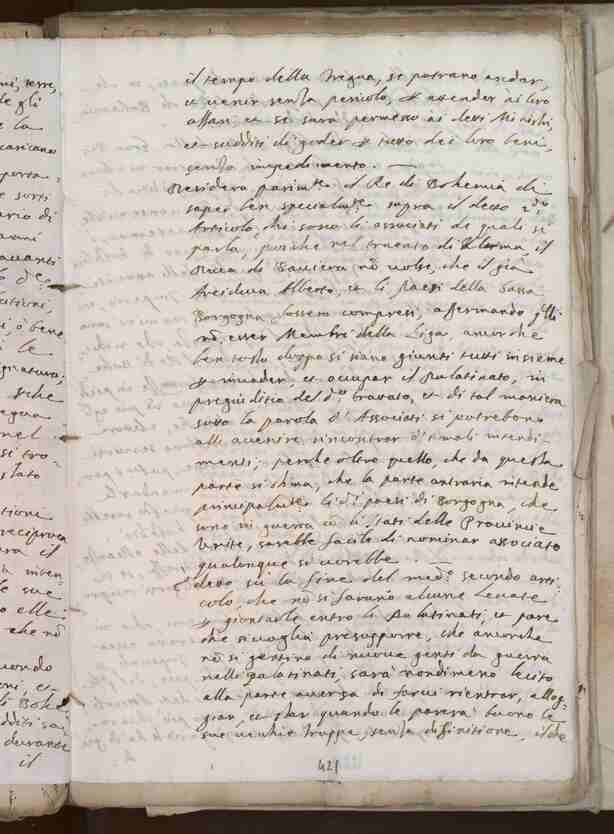 il tempo della tregua, se potrano andar,
et venir senza pericolo, et attender ài loro
affari et se sarà permesso ai detti Ministri,
et sudditi di goder tutto dei loro beni,
senza impedimento.
Desidera parimte il Re di Bohemia di
saper ben specialmte sopra il detto 2do
Articolo, chi sono li associati de quali si
parla, perche nel trattato di Ulerma, il
Duca di Baviera nõ volse, che il già
Arciduca Alberto, et li Paesi della Bassa
Borgogna fossero compresi, affermando
nõ esser Membri della Liga, ancorche
ben tosto doppo si siano giunti tutti insieme
invader, et occupar il Palatinato, in
pregiuditio del do tratato, et di tal maniera
sotto la parola d'Associati si potrebono
all' avvenire rincontrar d'simili intendi-
menti; perche oltro quello, che da questa
parte si stima, che la parte contraria intende
principalmte li di paesi di Borgogna, che
sono in guerra con li stati delle Provincie
Unite, sarebbe facile di nominar associato
qualunque si vorebbe.
Devo su la fine del medo secondo arti-
colo, che nõ si farano alcune levate
giontarle entro li Palatinati, et pare
che si voglia presupporre, che ancorche
nõ si gettino di nuove genti da guerra
nelli palatinati, sarà nondimeno lecito
alla parte aversa di farvi rientrar, allog-
giar, et star quando le parerà buono le
sue vecchie truppe, senza difinitione, il che
421
ni, terre,
de gli
e la
porta-
e sorti
ario di
avanti
citioni,
le
che
egua
nel
si tro-
stato
reciproca
era il
le sue
elle
che nõ
condo
oni, et
Bohe
dditi sa
durante
il